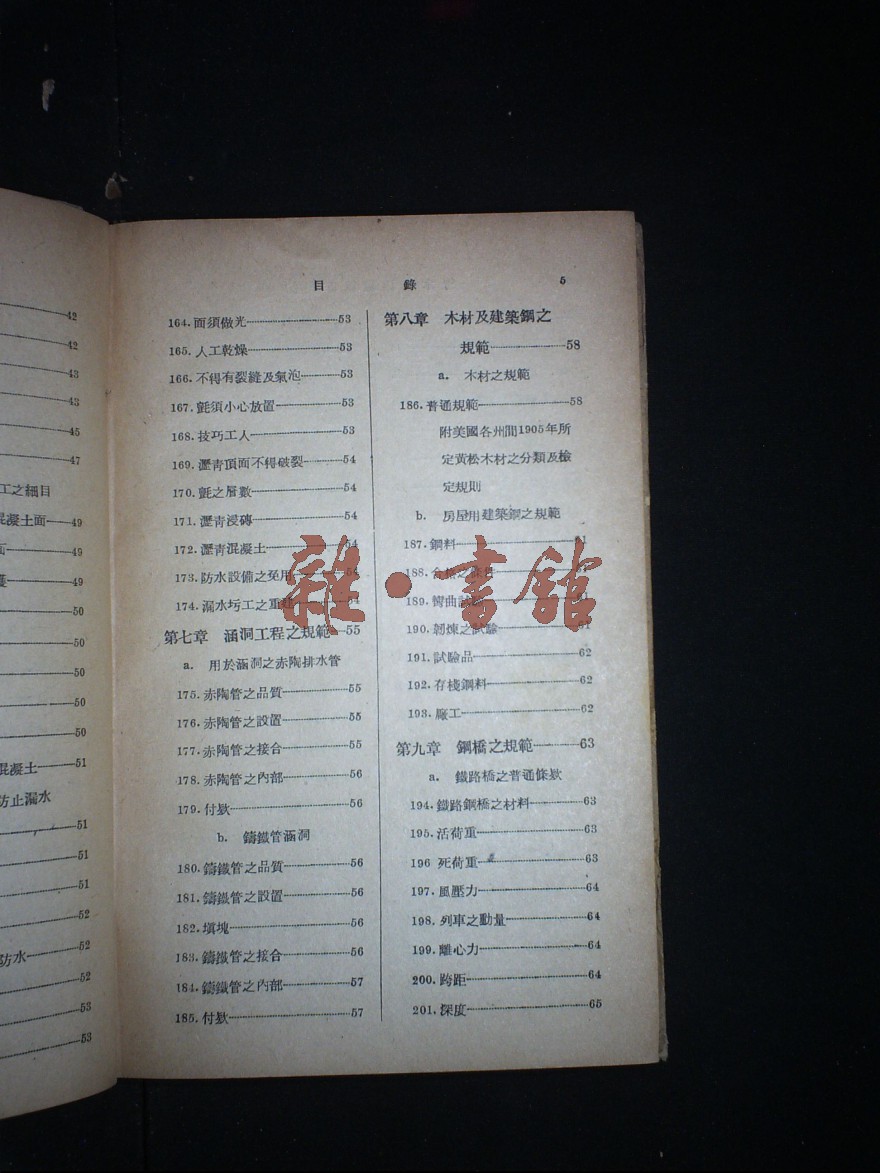 42
42
43
43
45
47
工之細目
混凝土面……49
面……49
護……49
50
50
50
50
50
混凝土……51
防止漏水
51
51
51
52
防水……52
52
53
53
目 錄 5
164.面須做光……53
165.人工乾燥……53
166.不得有裂縫及氣泡……53
167.氈須小心放置……53
168.技巧工人……53
169.瀝青頂面不得破裂……54
170.氈之層數……54
171.瀝青浸磚……54
172.瀝青混凝土……54
173.防水設備之免用……54
174.漏水圬工之重建……54
第七章 涵洞工程之規範……55
a. 用於涵洞之赤陶排水管
175.赤陶管之品質……55
176.赤陶管之設置……55
177.赤陶管之接合……55
178.赤陶管之內部……56
179.付欵……56
b. 鑄鐵管涵洞
180.鑄鐵管之品質……56
181.鑄鐵管之設置……56
182.塡塊……56
183.鑄鐵管之接合……56
184.鑄鐵管之內部……57
185.付欵……57
第八章 木材及建築鋼之
規範……58
a. 木材之規範
186.普通規範……58
附美國各州間1905年所
定黃松木材之分類及檢
定規則
b. 房屋用建築鋼之規範
187.鋼料……61
188.合格之
189.彎曲試驗……61
190.韌煉之試驗……61
191.試驗品……62
192.存棧鋼料……62
193.廠工……62
第九章 鋼橋之規範……63
a. 鐵路橋之普通條欵
194.鐵路鋼橋之材料……63
195.活荷重……63
196 死荷重……63
197.風壓力……64
198.列車之動量……64
199.離心力……64
200.跨距……64
201.深度……65
雜·書館